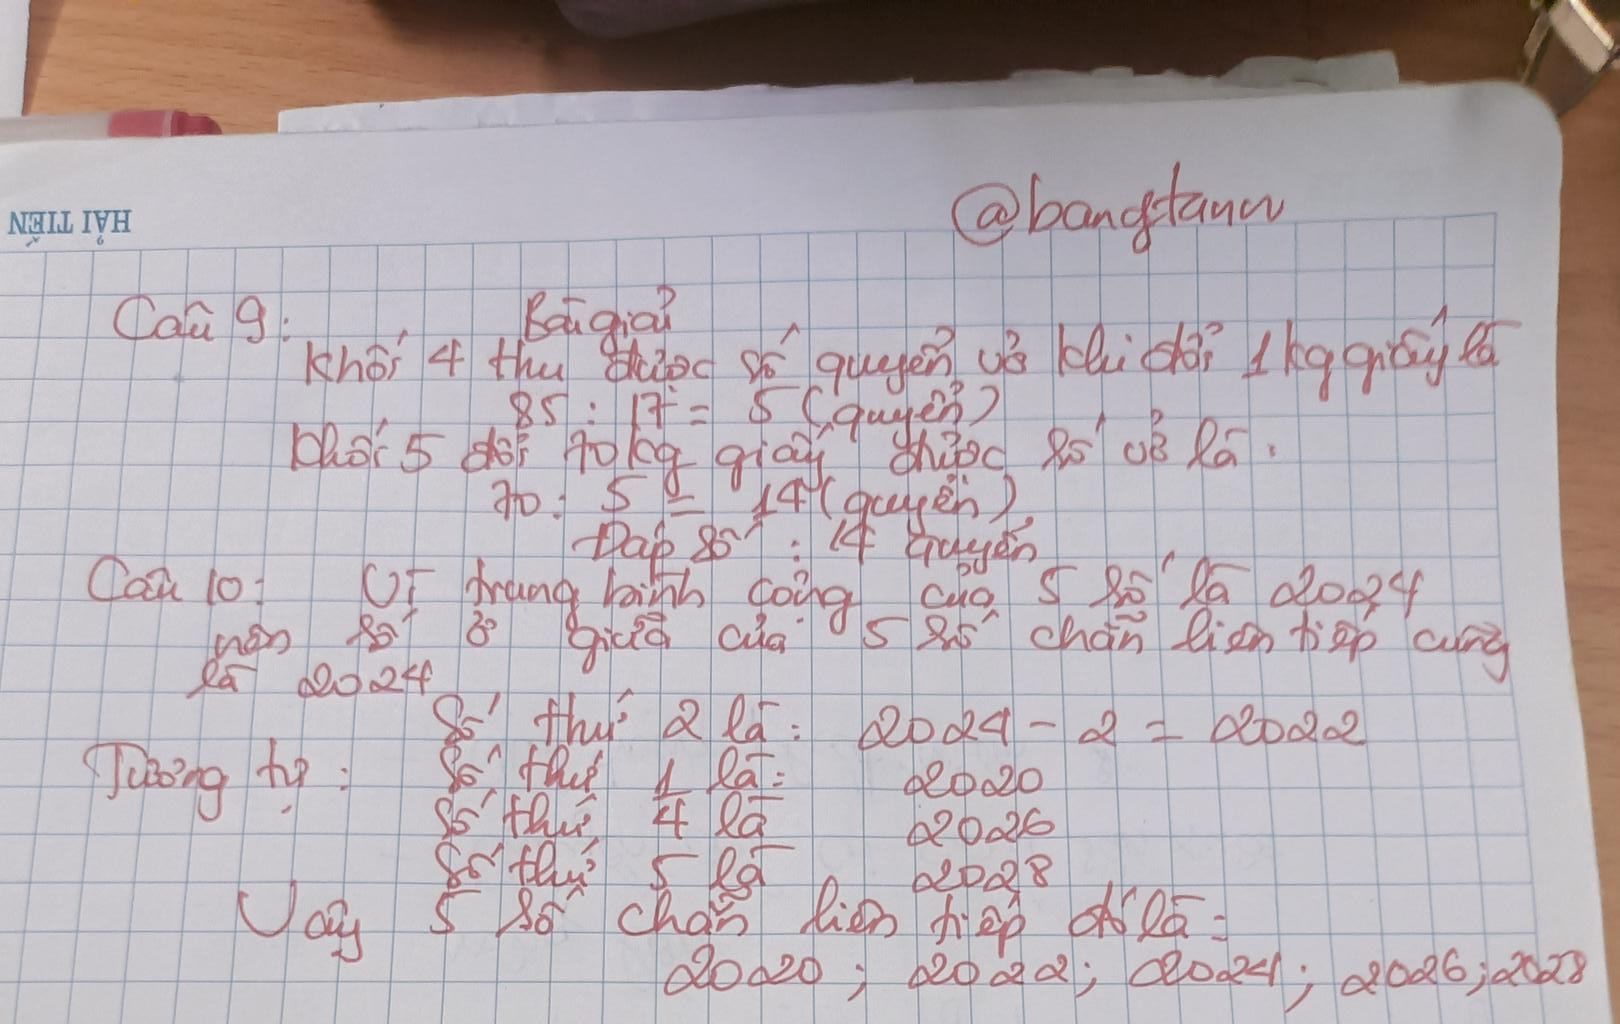 HẢI TIẾN
@bangtanw
Câu 9: Bài giải
Khối 4 thu được số quyển vở khi đổi 1kg giấy là
85 : 17 = 5 (quyển)
Khối 5 đổi 70kg giấy được số vở là :
70 : 5 = 14 (quyển)
Đáp số : 14 quyển
Câu 10: Vì trung bình cộng của 5 số là 2024
nên số ở giữa của 5 số chẵn liên tiếp cũng
là 2024
Số thứ 2 là : 2024 - 2 = 2022
Tương tự : Số thứ 1 là : 2020
Số thứ 4 là 2026
Số thứ 5 là 2028
Vậy 5 số chẵn liên tiếp đó là :
2020 ; 2022 ; 2024 ; 2026 ; 2028